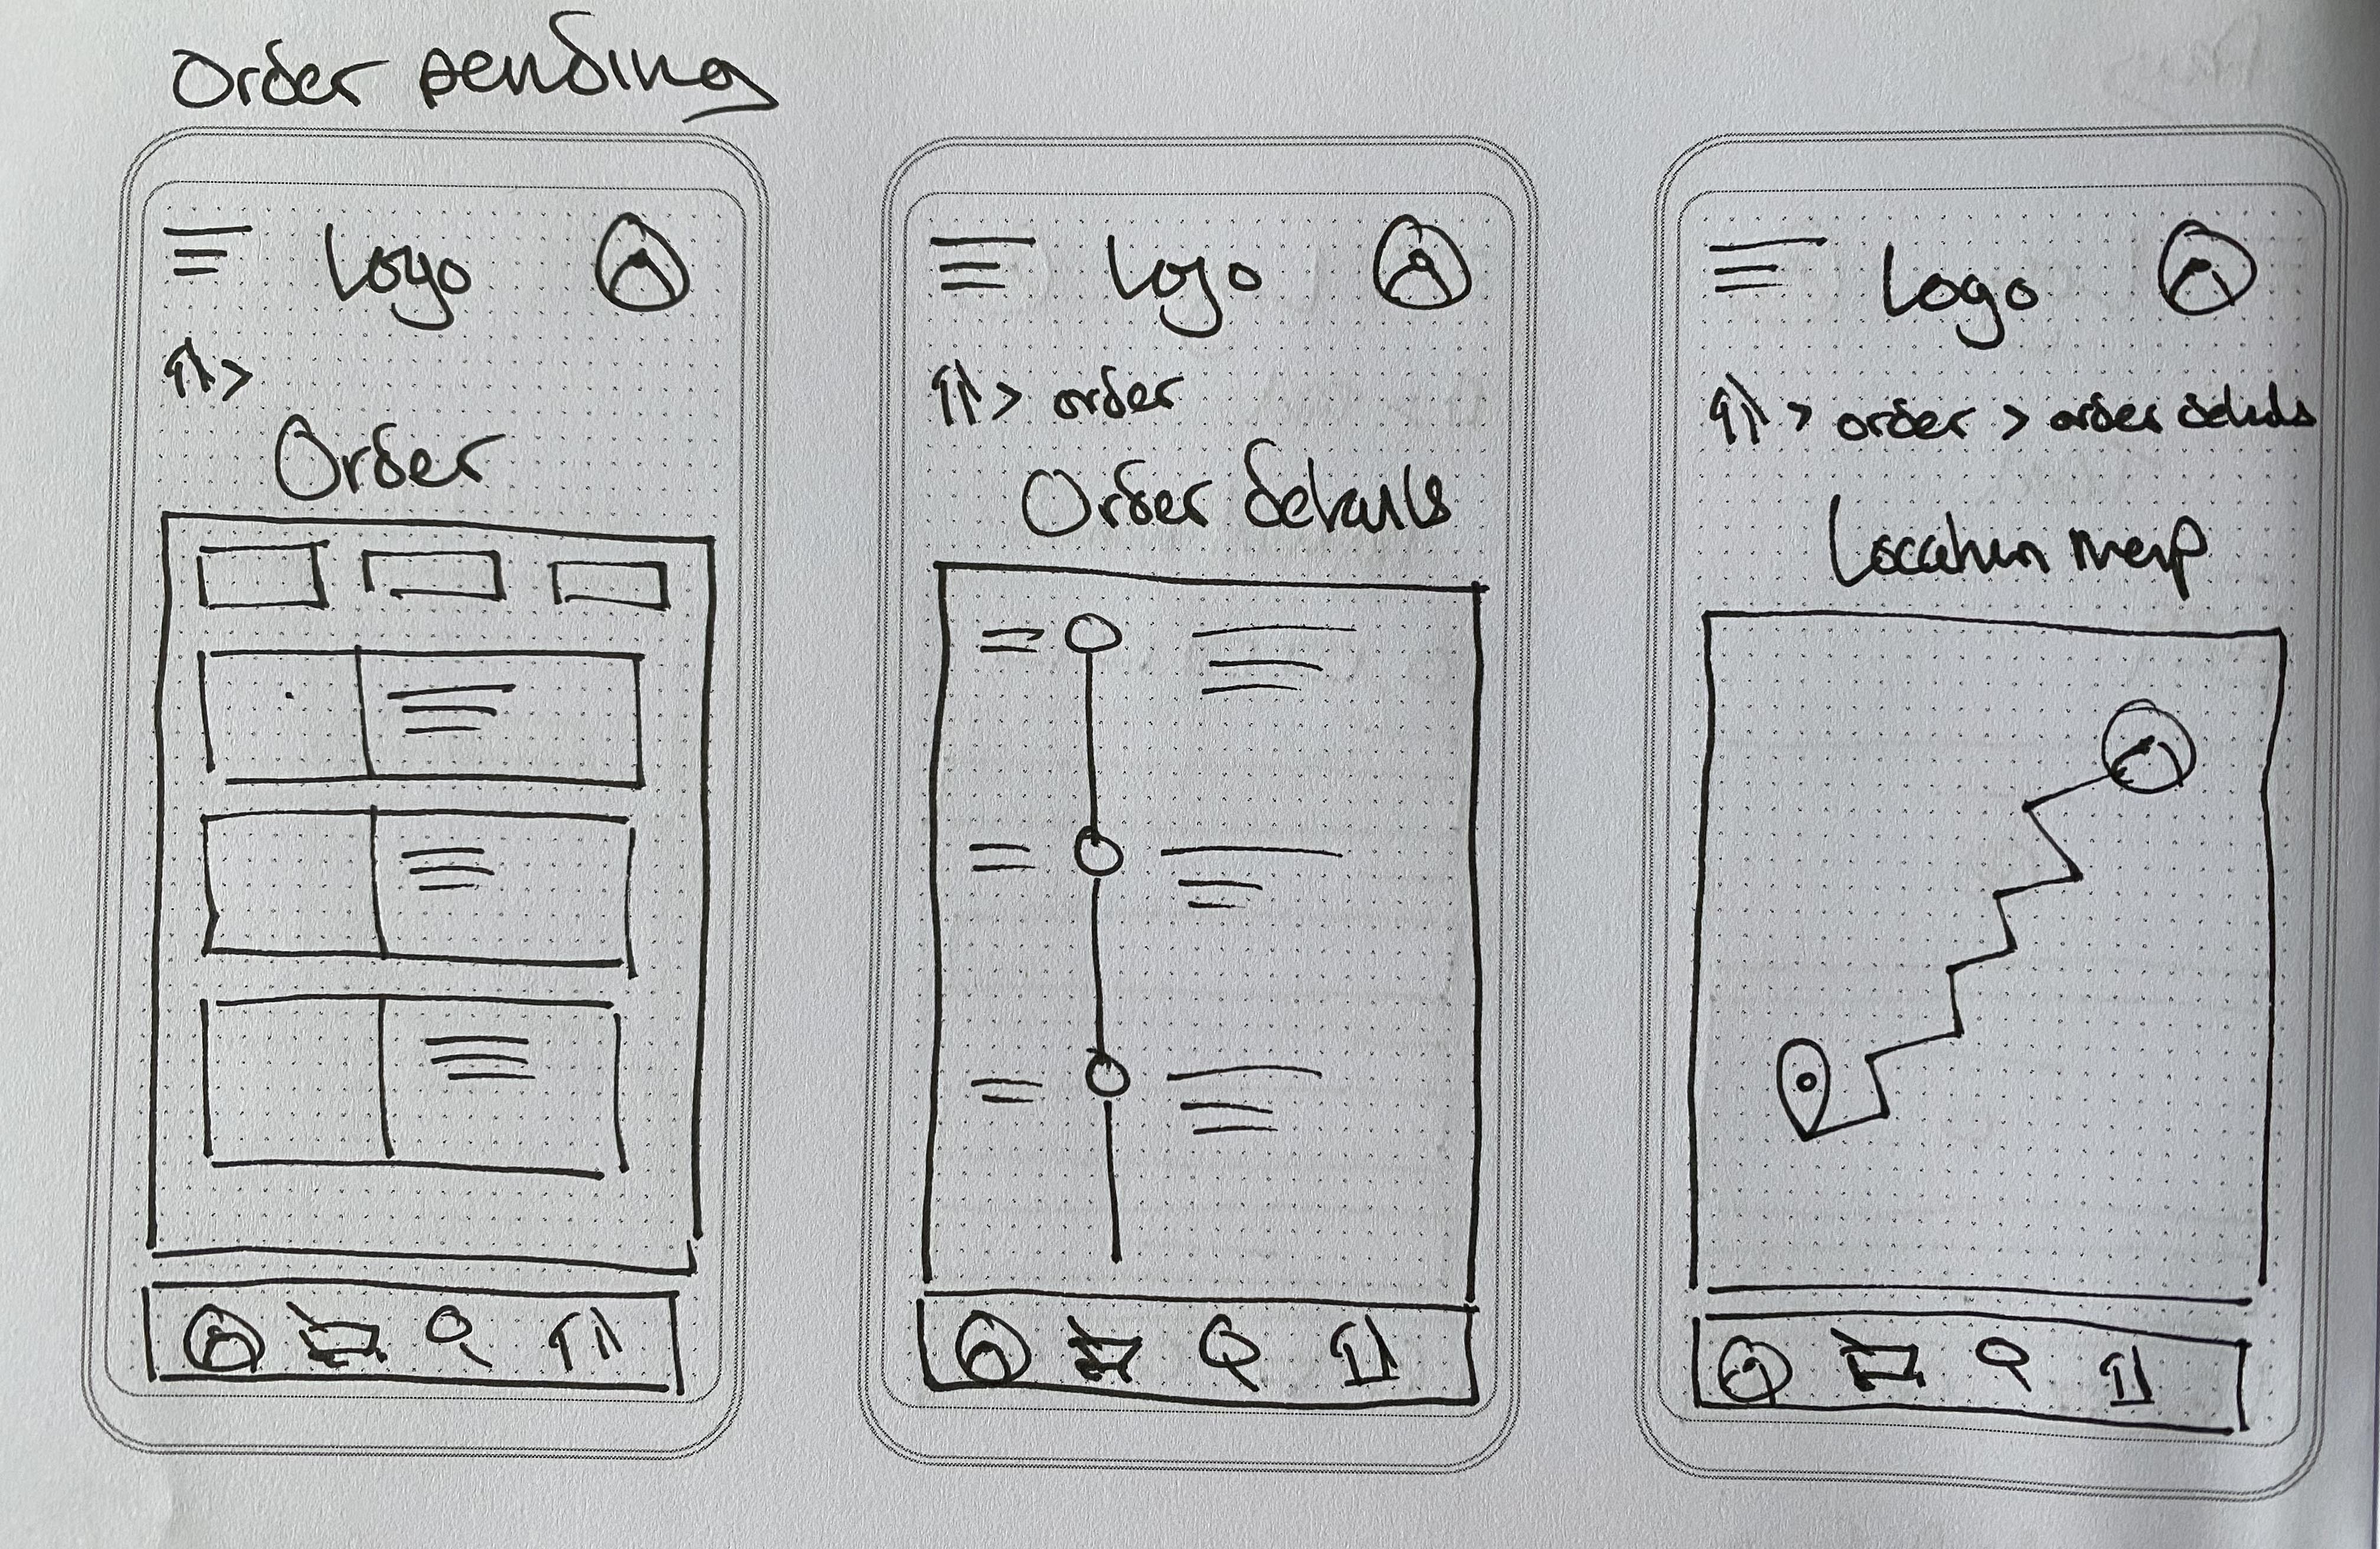 Order pending
Logo
>
Order
Logo
> order
Order details
Logo
> order > order details
Location map